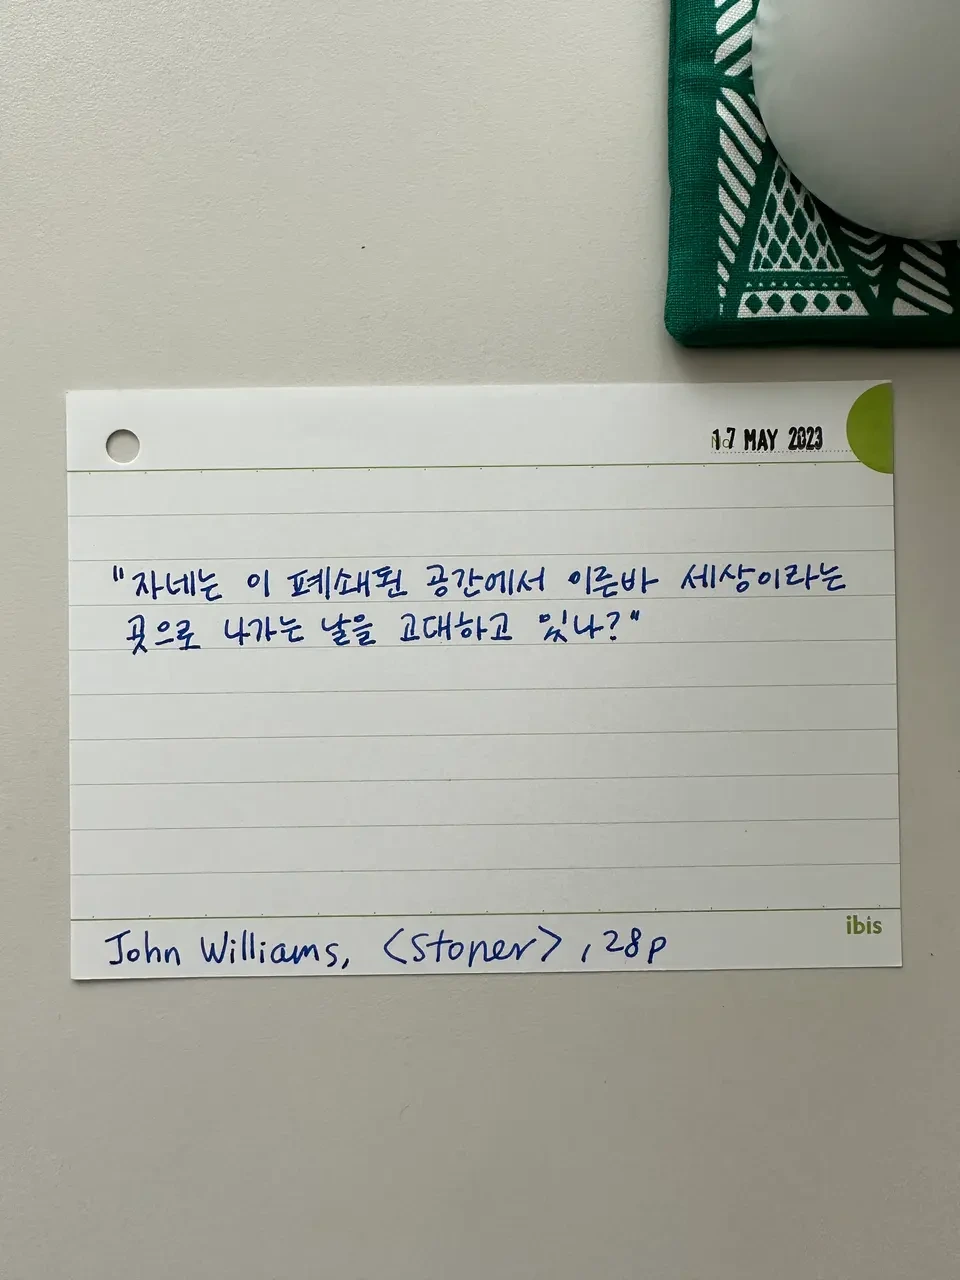 17 MAY 2023
"자네는 이 폐쇄된 공간에서 이른바 세상이라는
곳으로 나가는 날을 고대하고 있나?"
ibis
John Williams, <Stoner>, 28p